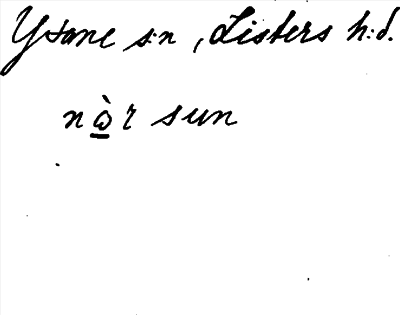 Ysane s:n, Listers h:d.
nò̲r sun